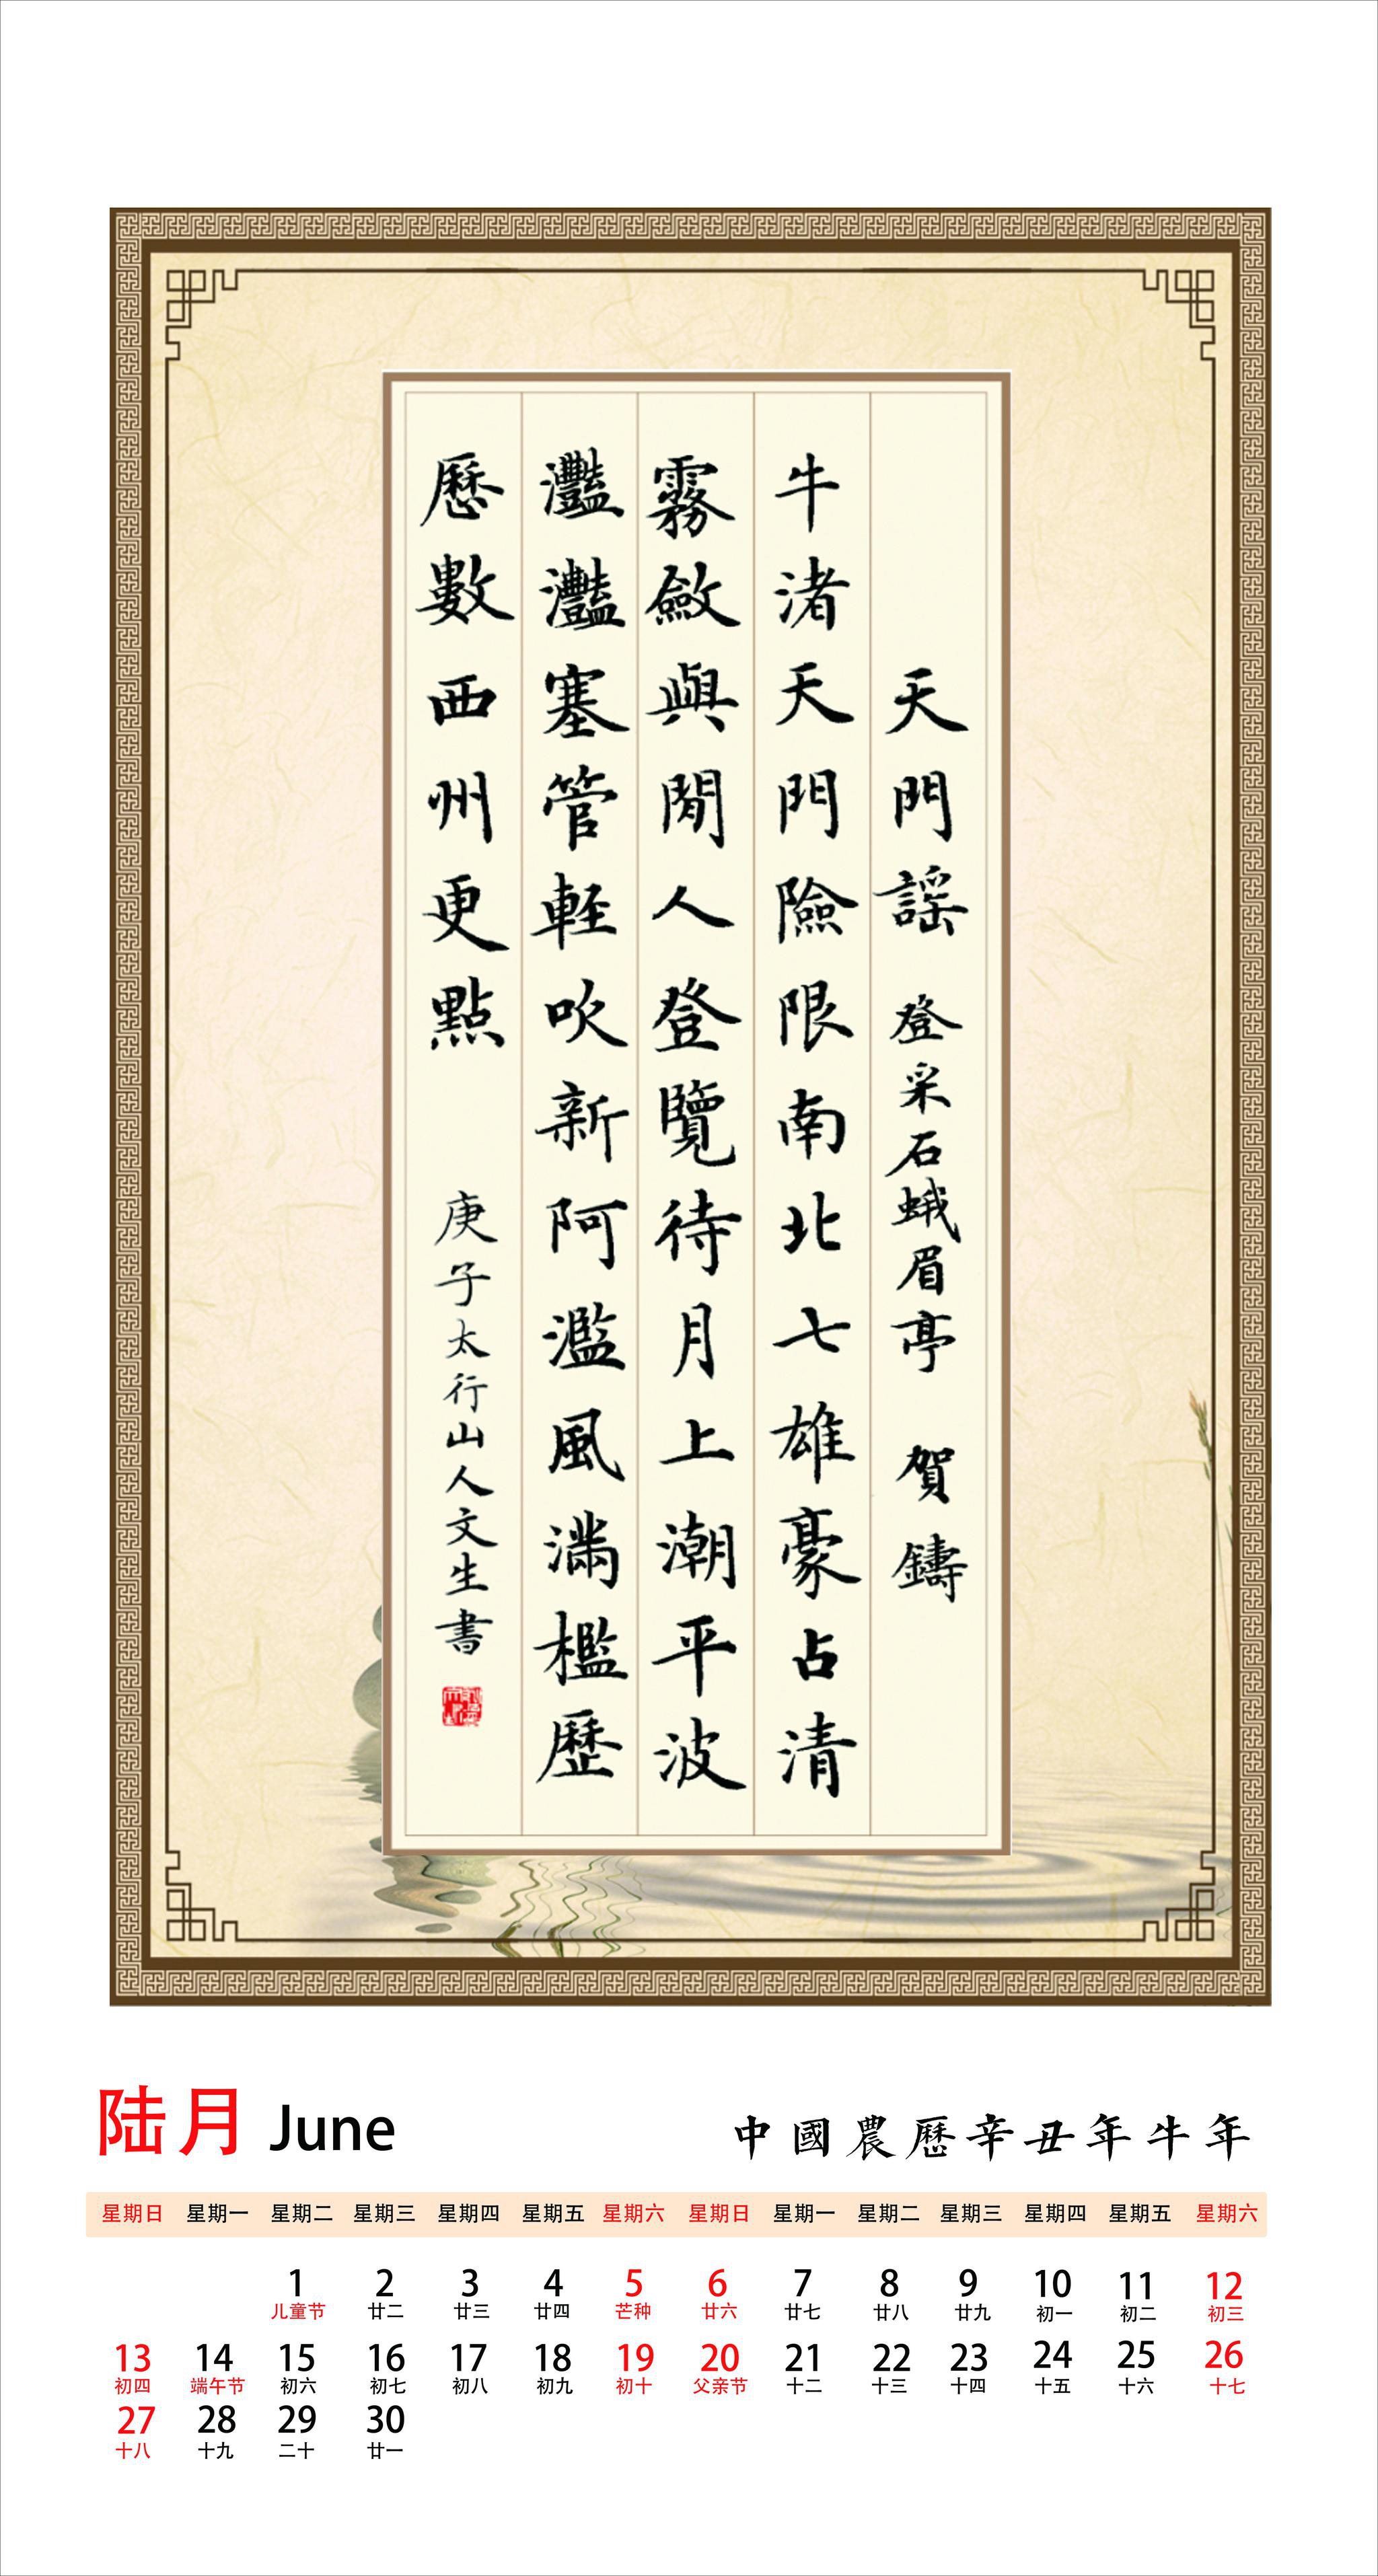 天門謡 登采石蛾眉亭 賀鑄
牛渚天門險限南北七雄豪占清
霧斂與閒人登覽待月上潮平波
灩灩塞管輕吹新阿濫風滿檻歷
歷數西州更點 庚子太行山人文生書
陆月 June
中國農歷辛丑年牛年
星期日 星期一 星期二 星期三 星期四 星期五 星期六 星期日 星期一 星期二 星期三 星期四 星期五 星期六
1 2 3 4 5 6 7 8 9 10 11 12
儿童节 廿二 廿三 廿四 芒种 廿六 廿七 廿八 廿九 初一 初二 初三
13 14 15 16 17 18 19 20 21 22 23 24 25 26
初四 端午节 初六 初七 初八 初九 初十 父亲节 十二 十三 十四 十五 十六 十七
27 28 29 30
十八 十九 二十 廿一